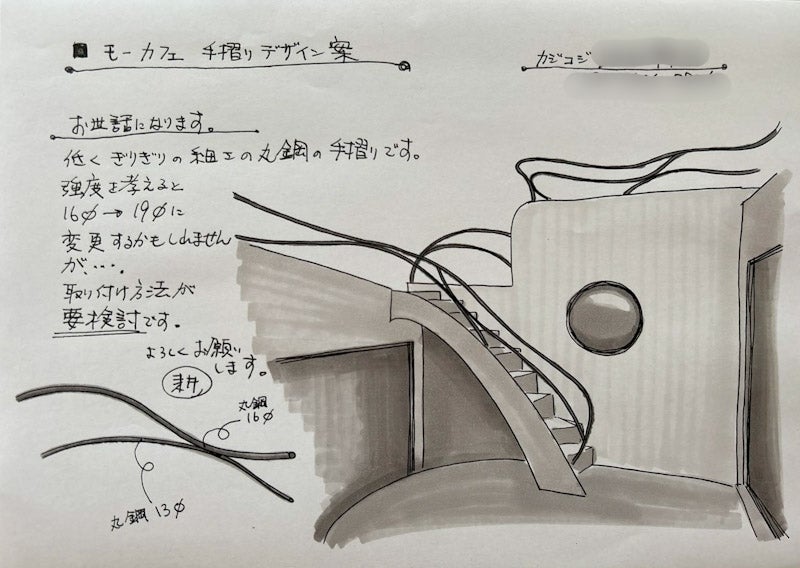 ■ モーカフェ 手摺りデザイン案
カジコジ
お世話になります。
低くぎりぎりの細工の丸鋼の手摺りです。
強度を考えると
16φ→19φに
変更するかもしれません
が、・・・.
取り付け方法が
要検討です。
よろしくお願い
します。
耕
丸鋼
16φ
丸鋼 13φ